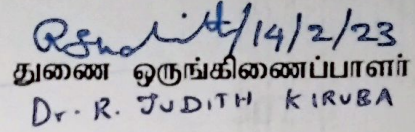 14/2/23
துணை ஒருங்கிணைப்பாளர்
Dr. R. JUDITH KIRUBA